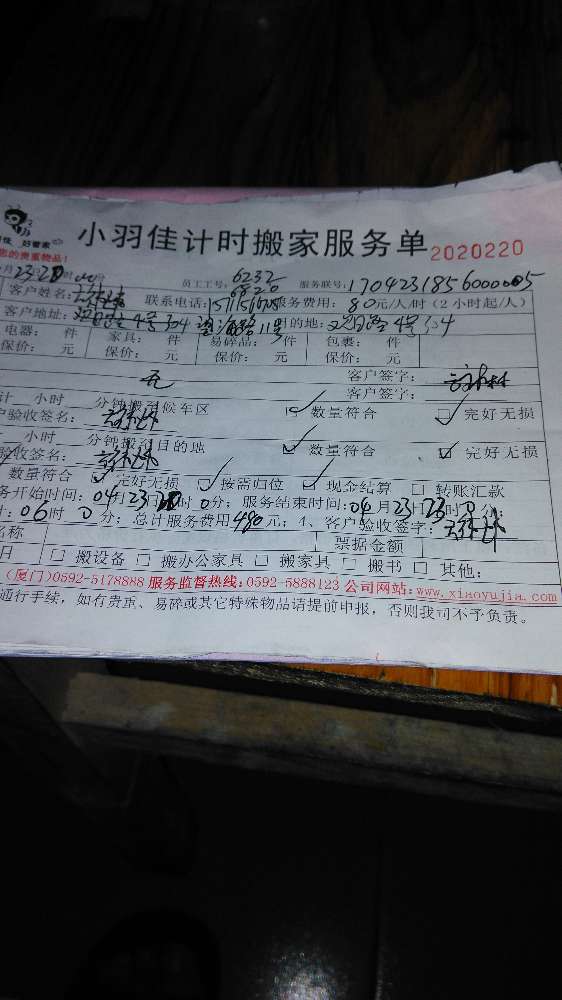 好管家
小羽佳计时搬家服务单 2020220
您的贵重物品!
员工工号: 6232 6820 服务联号: 1704231856000005
客户姓名: 联系电话: 服务费用: 80元/人/时(2小时起/人)
客户地址: 4号304 11号 目的地: 4号304
电器: 件 家具: 件 易碎品: 件 包裹: 件
保价: 元 保价: 元 保价: 元 保价: 元
无 客户签字:
客户签字:
计 小时 分钟搬至候车区 ✓ 数量符合 ✓ 完好无损
户验收签名:
小时 分钟搬至目的地 ✓ 数量符合 ✓ 完好无损
验收签名:
数量符合 ✓ 完好无损 ✓ 按需归位 ✓ 现金结算 □ 转账汇款
务开始时间: 04月23日 时0分; 服务结束时间: 04月23日23时0分;
计: 06时0分; 总计服务费用480元; 1、客户验收签字:
名称 票据金额
日 □ 搬设备 □ 搬办公家具 □ 搬家具 □ 搬书 □ 其他:
(厦门)0592-5178888 服务监督热线: 0592-5888123 公司网站: www.xiaoyujia.com
通行手续, 如有贵重、易碎或其它特殊物品请提前申报, 否则我司不予负责。